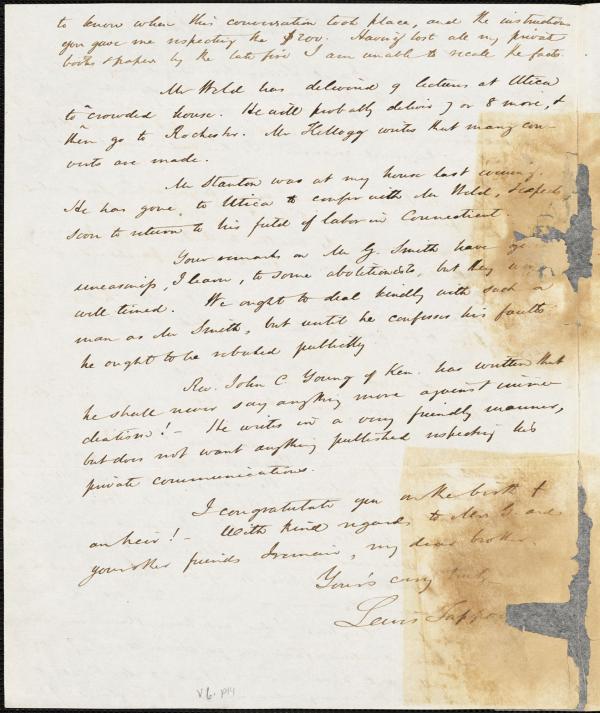 to know when this conversation took place, and the instructions
you gave me respecting the $200. Having lost all my private
books & papers by the late fire I am unable to recall the facts.
Mr Weld has delivered 9 lectures at Utica
to crowded house. He will probably deliver 7 or 8 more, &
then go to Rochester. Mr Kellogg writes that many con-
verts are made.
Mr Stanton was at my house last evening.
He has gone to Utica to confer with Mr Weld, & expects
soon to return to his field of labor in Connecticut.
Your remarks on Mr G. Smith have
uneasiness, I learn, to some abolitionists, but they
well timed. We ought to deal kindly with such a
man as Mr Smith, but until he confesses his faults
he ought to be rebuked publickly
Rev. John C. Young of Ken. has written that
he shall never say anything more against imme
diatism! - He writes in a very friendly manner,
but does not want anything published respecting his
private communications.
I congratulate you on the birth of
an heir! - With kind regards to Mrs G and
your other friends I remain, my dear brother,
Your's very truly
Lewis Tappan
V.6. p14